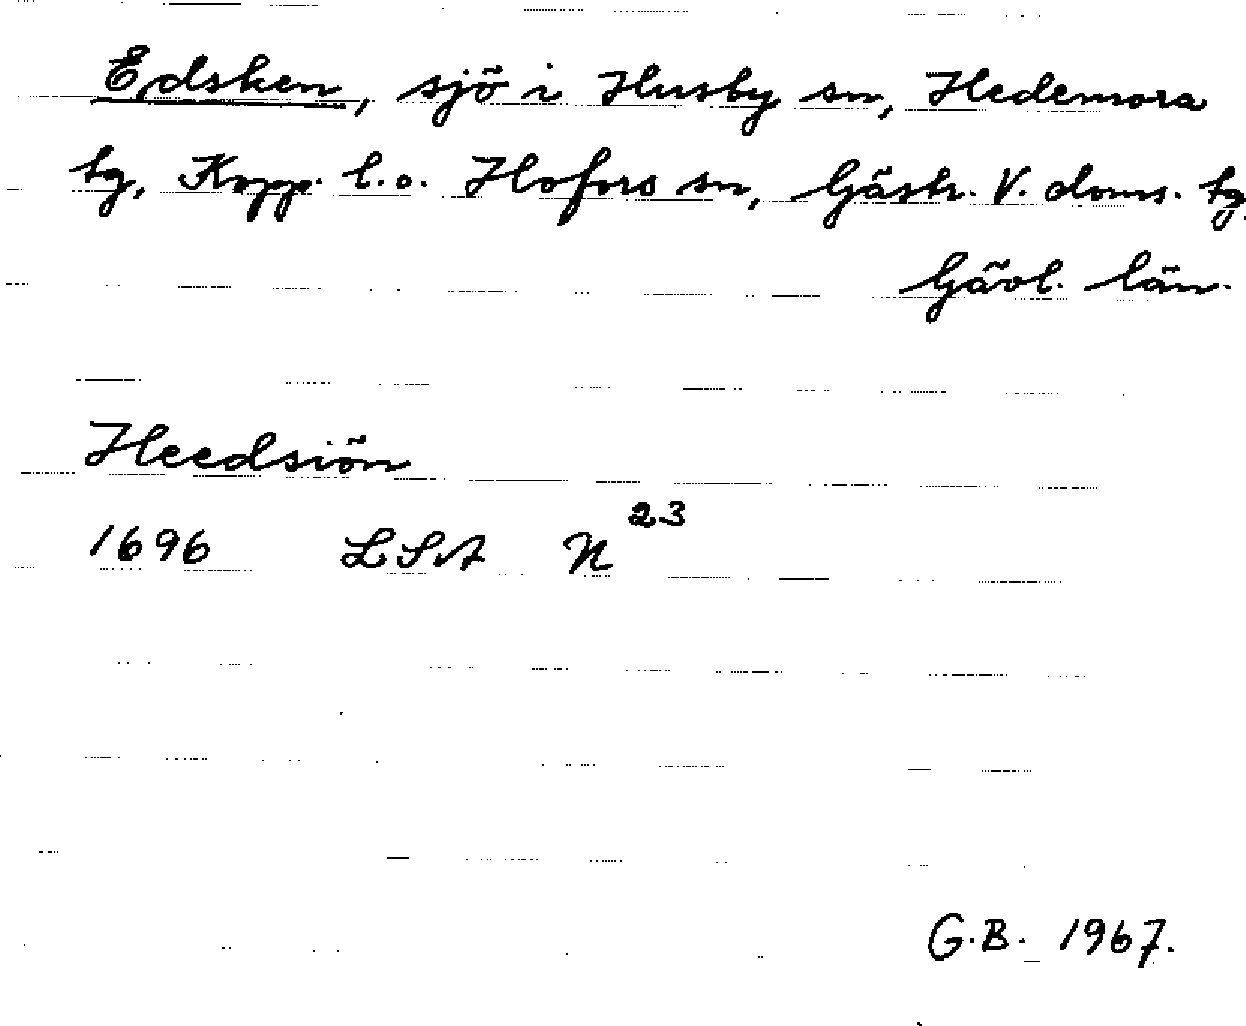 Edsken, sjö i Husby sn, Hedemora
tg, Kopp. l. o. Hofors sn, Gästr. V. doms. tg.
Gävl. län.
Heedsiön
1696 LSA N 23
G.B. 1967.